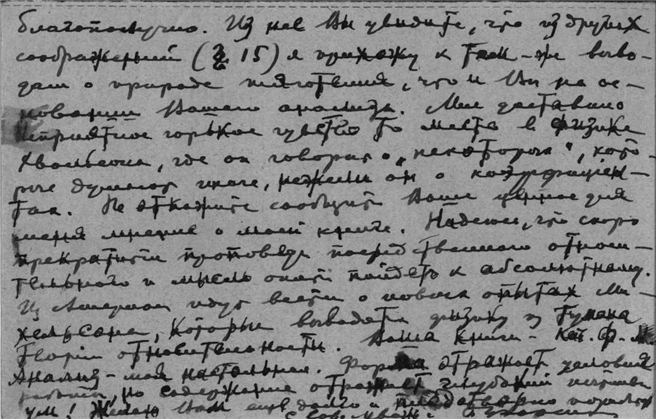 благополучно. Из нее Вы увидите, что из других
соображений (§ 15) я прихожу к тем-же выво-
дам о природе тяготения, что и Вы на ос-
новании Вашего анализа. Мне доставило
неприятное горькое чувство то место в физике
Хвольсона, где он говорил о "некоторых", кото-
рые думают иначе, нежели он о коэффициен-
тах. Не откажите сообщить Ваше ценное для
меня мнение о моей книге. Надеюсь, что скоро
прекратится проповедь посредственного относи-
тельного и мысль опять пойдет к абсолютному.
Из Америки идут вести о новых опытах Ми-
хельсона, которые выводят физику из тумана
теории относительности. Ваша книга -
Анализ - моя настольная. Форма отражает условия
но содержание отражает глубокий
ум! Желаю Вам еще долго и плодотворно